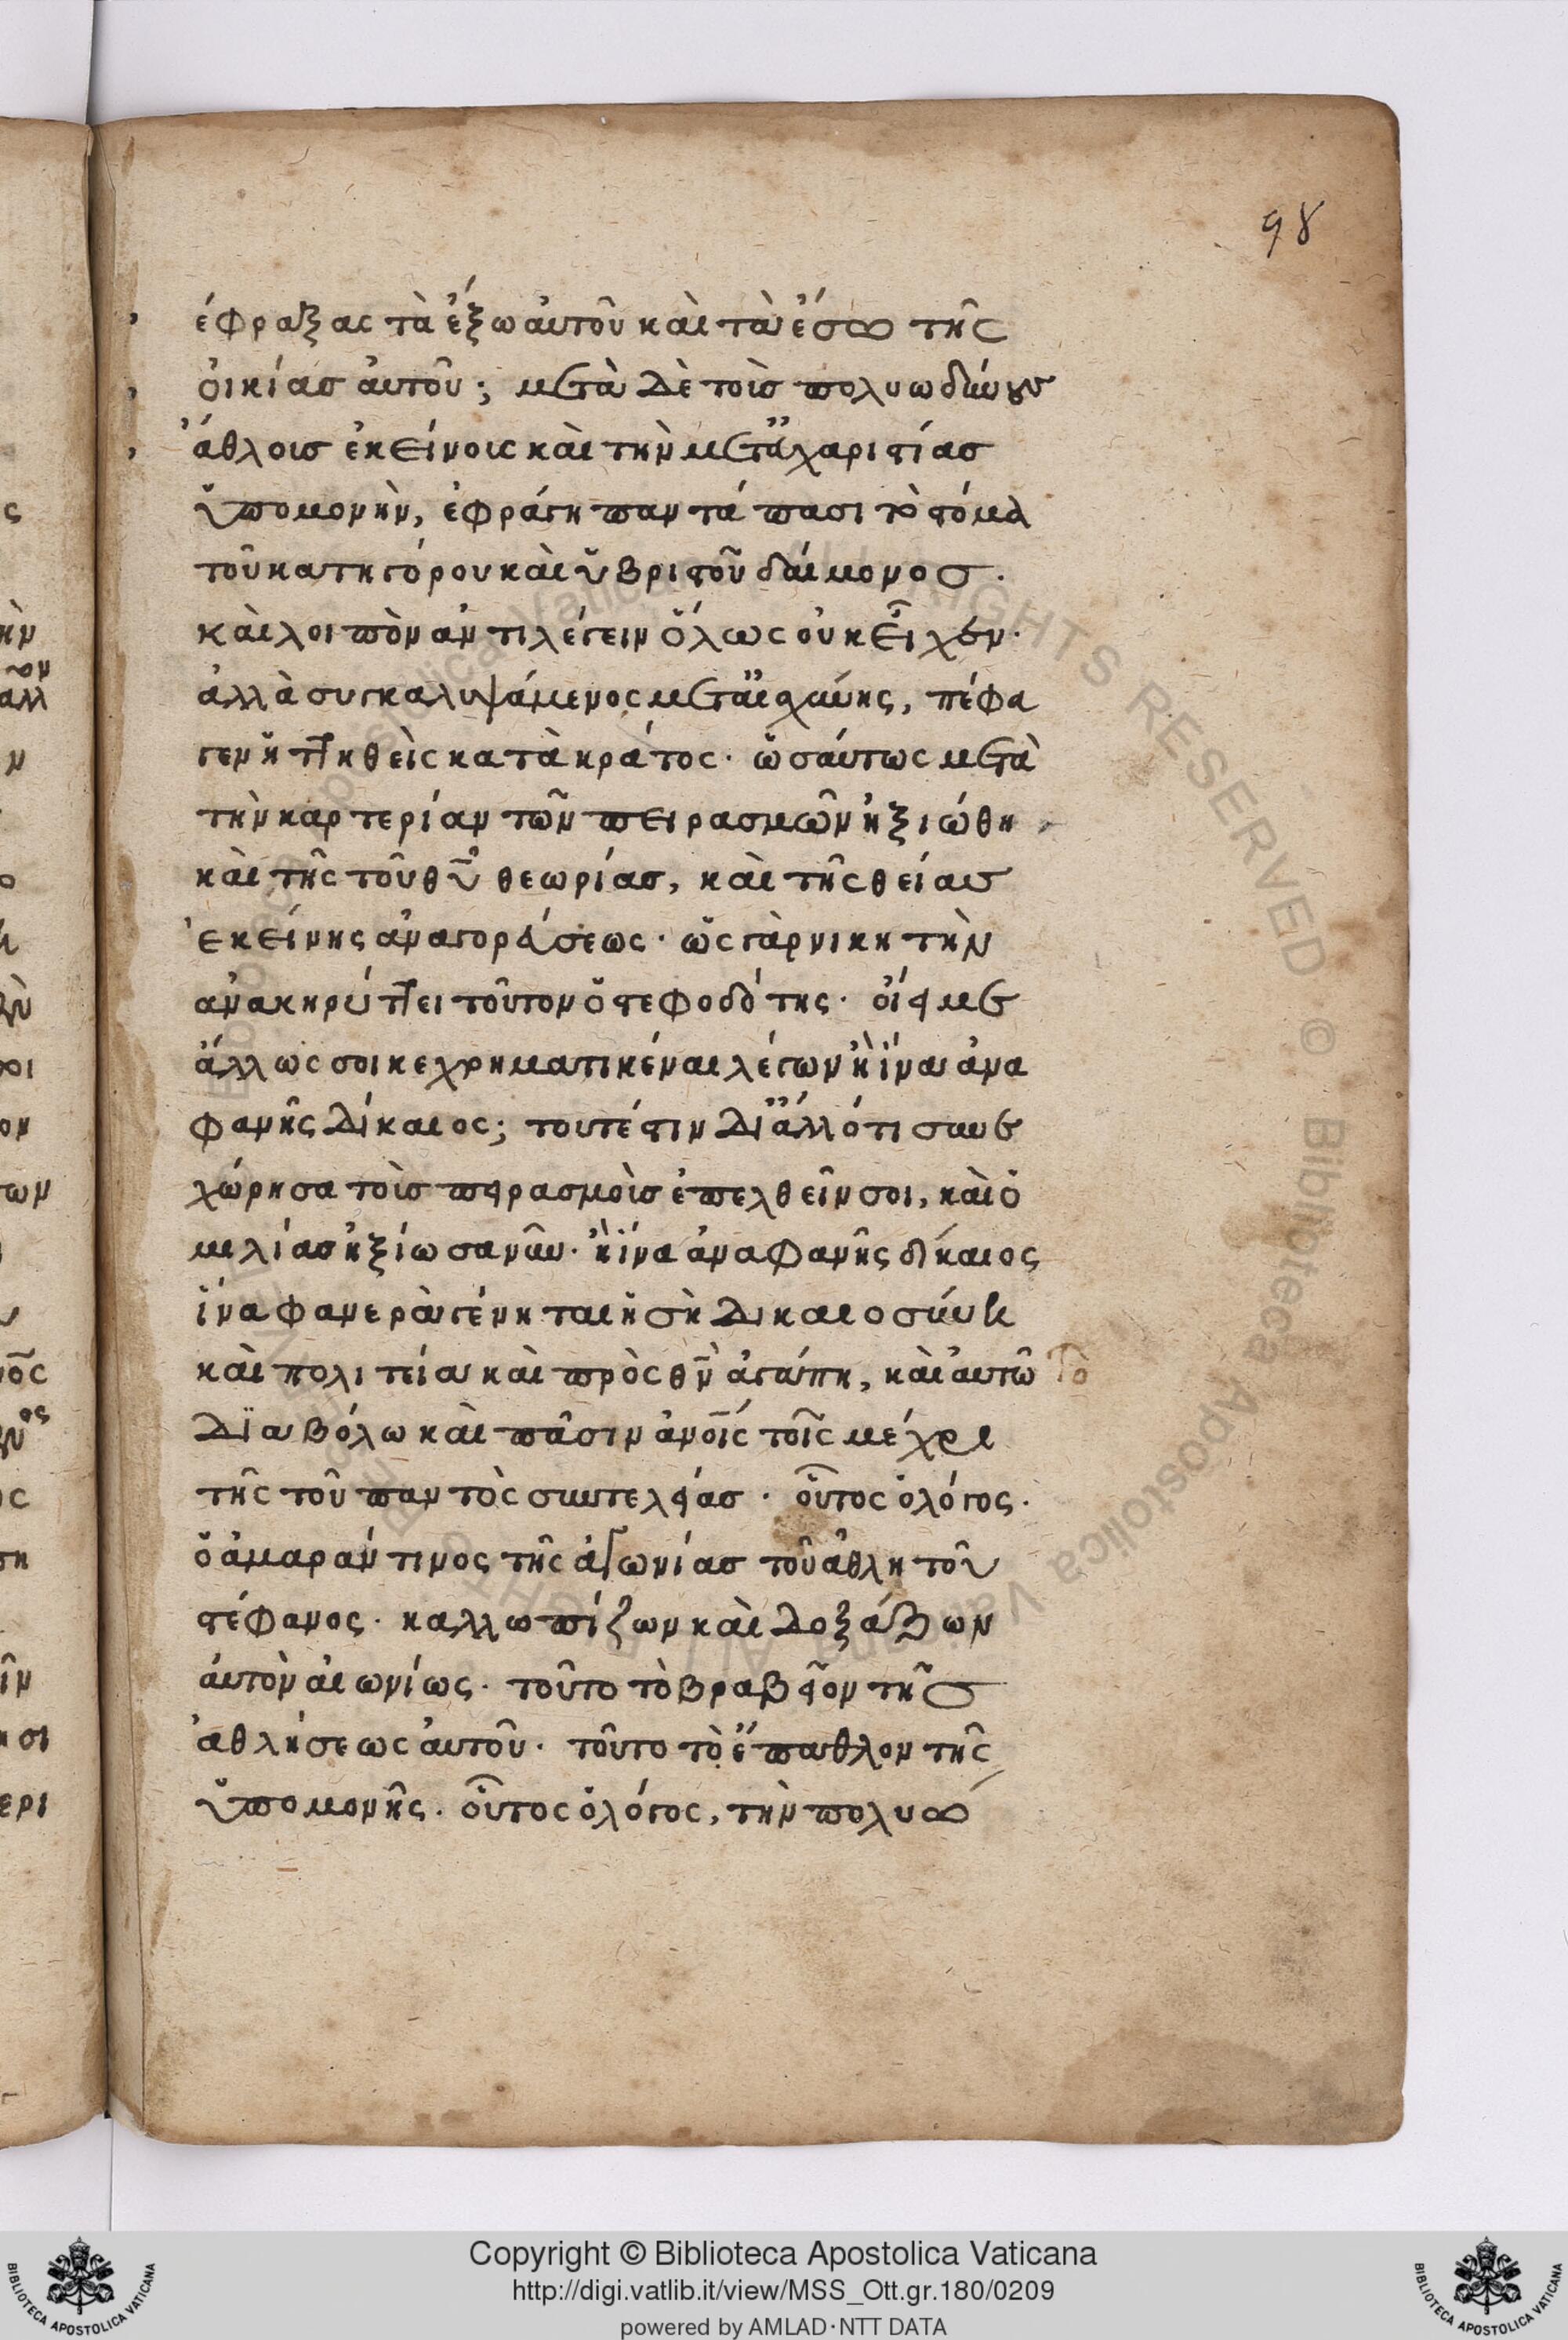 98
ἔφραξας τὰ ἔξω αὐτοῦ καὶ τὰ ἔσω τῆς
οἰκίας αὐτοῦ; μετὰ δὲ τοὺς πολυωδύνους
ἄθλους ἐκείνους καὶ τὴν μετ' εὐχαριστίας
ὑπομονὴν, ἐφράγη παντάπασι τὸ στόμα
τοῦ κατηγόρου καὶ ὑβριστοῦ δαίμονος.
καὶ λοιπὸν ἀντιλέγειν ὅλως οὐκ εἶχεν·
ἀλλὰ συγκαλυψάμενος μετ' αἰσχύνης, πέφευ
γεν ἡττηθεὶς κατὰ κράτος· ὡσαύτως μετὰ
τὴν καρτερίαν τῶν πειρασμῶν ἠξιώθη
καὶ τῆς τοῦ θυ θεωρίας, καὶ τῆς θείας
ἐκείνης ἀναγορεύσεως· ὡς γὰρ νικητὴν
ἀνακηρύττει τοῦτον ὁ στεφοδότης· οἴει με
ἄλλως σοι κεχρηματικέναι λέγων ἢ ἵνα ἀνα
φανῇς δίκαιος; τουτέστιν δι' ἄλλό τι συνε
χώρησα τοὺς πειρασμοὺς ἐπελθεῖν σοι, καὶ ὁ
μιλίας ἠξίωσα νῦν· ἢ ἵνα ἀναφανῇς δίκαιος
ἵνα φανερὰ γένηται ἡ σὴ δικαιοσύνη
καὶ πολιτεία καὶ πρὸς θν ἀγάπη, καὶ αὐτῶ τῶ
διαβόλω καὶ πᾶσιν ἀνοις τοῖς μέχρι
τῆς τοῦ παντὸς συντελείας· οὗτος ὁ λόγος·
ὁ ἀμαράντινος τῆς ἀγωνίας τοῦ ἀθλητοῦ
στέφανος· καλλωπίζων καὶ δοξάζων
αὐτὸν αἰωνίως· τοῦτο τὸ βραβεῖον τῆς
ἀθλήσεως αὐτοῦ· τοῦτο τὸ ἔπαθλον τῆς
ὑπομονῆς· οὗτος ὁ λόγος, τὴν πολυω
Copyright © Biblioteca Apostolica Vaticana
http://digi.vatlib.it/view/MSS_Ott.gr.180/0209
powered by AMLAD·NTT DATA